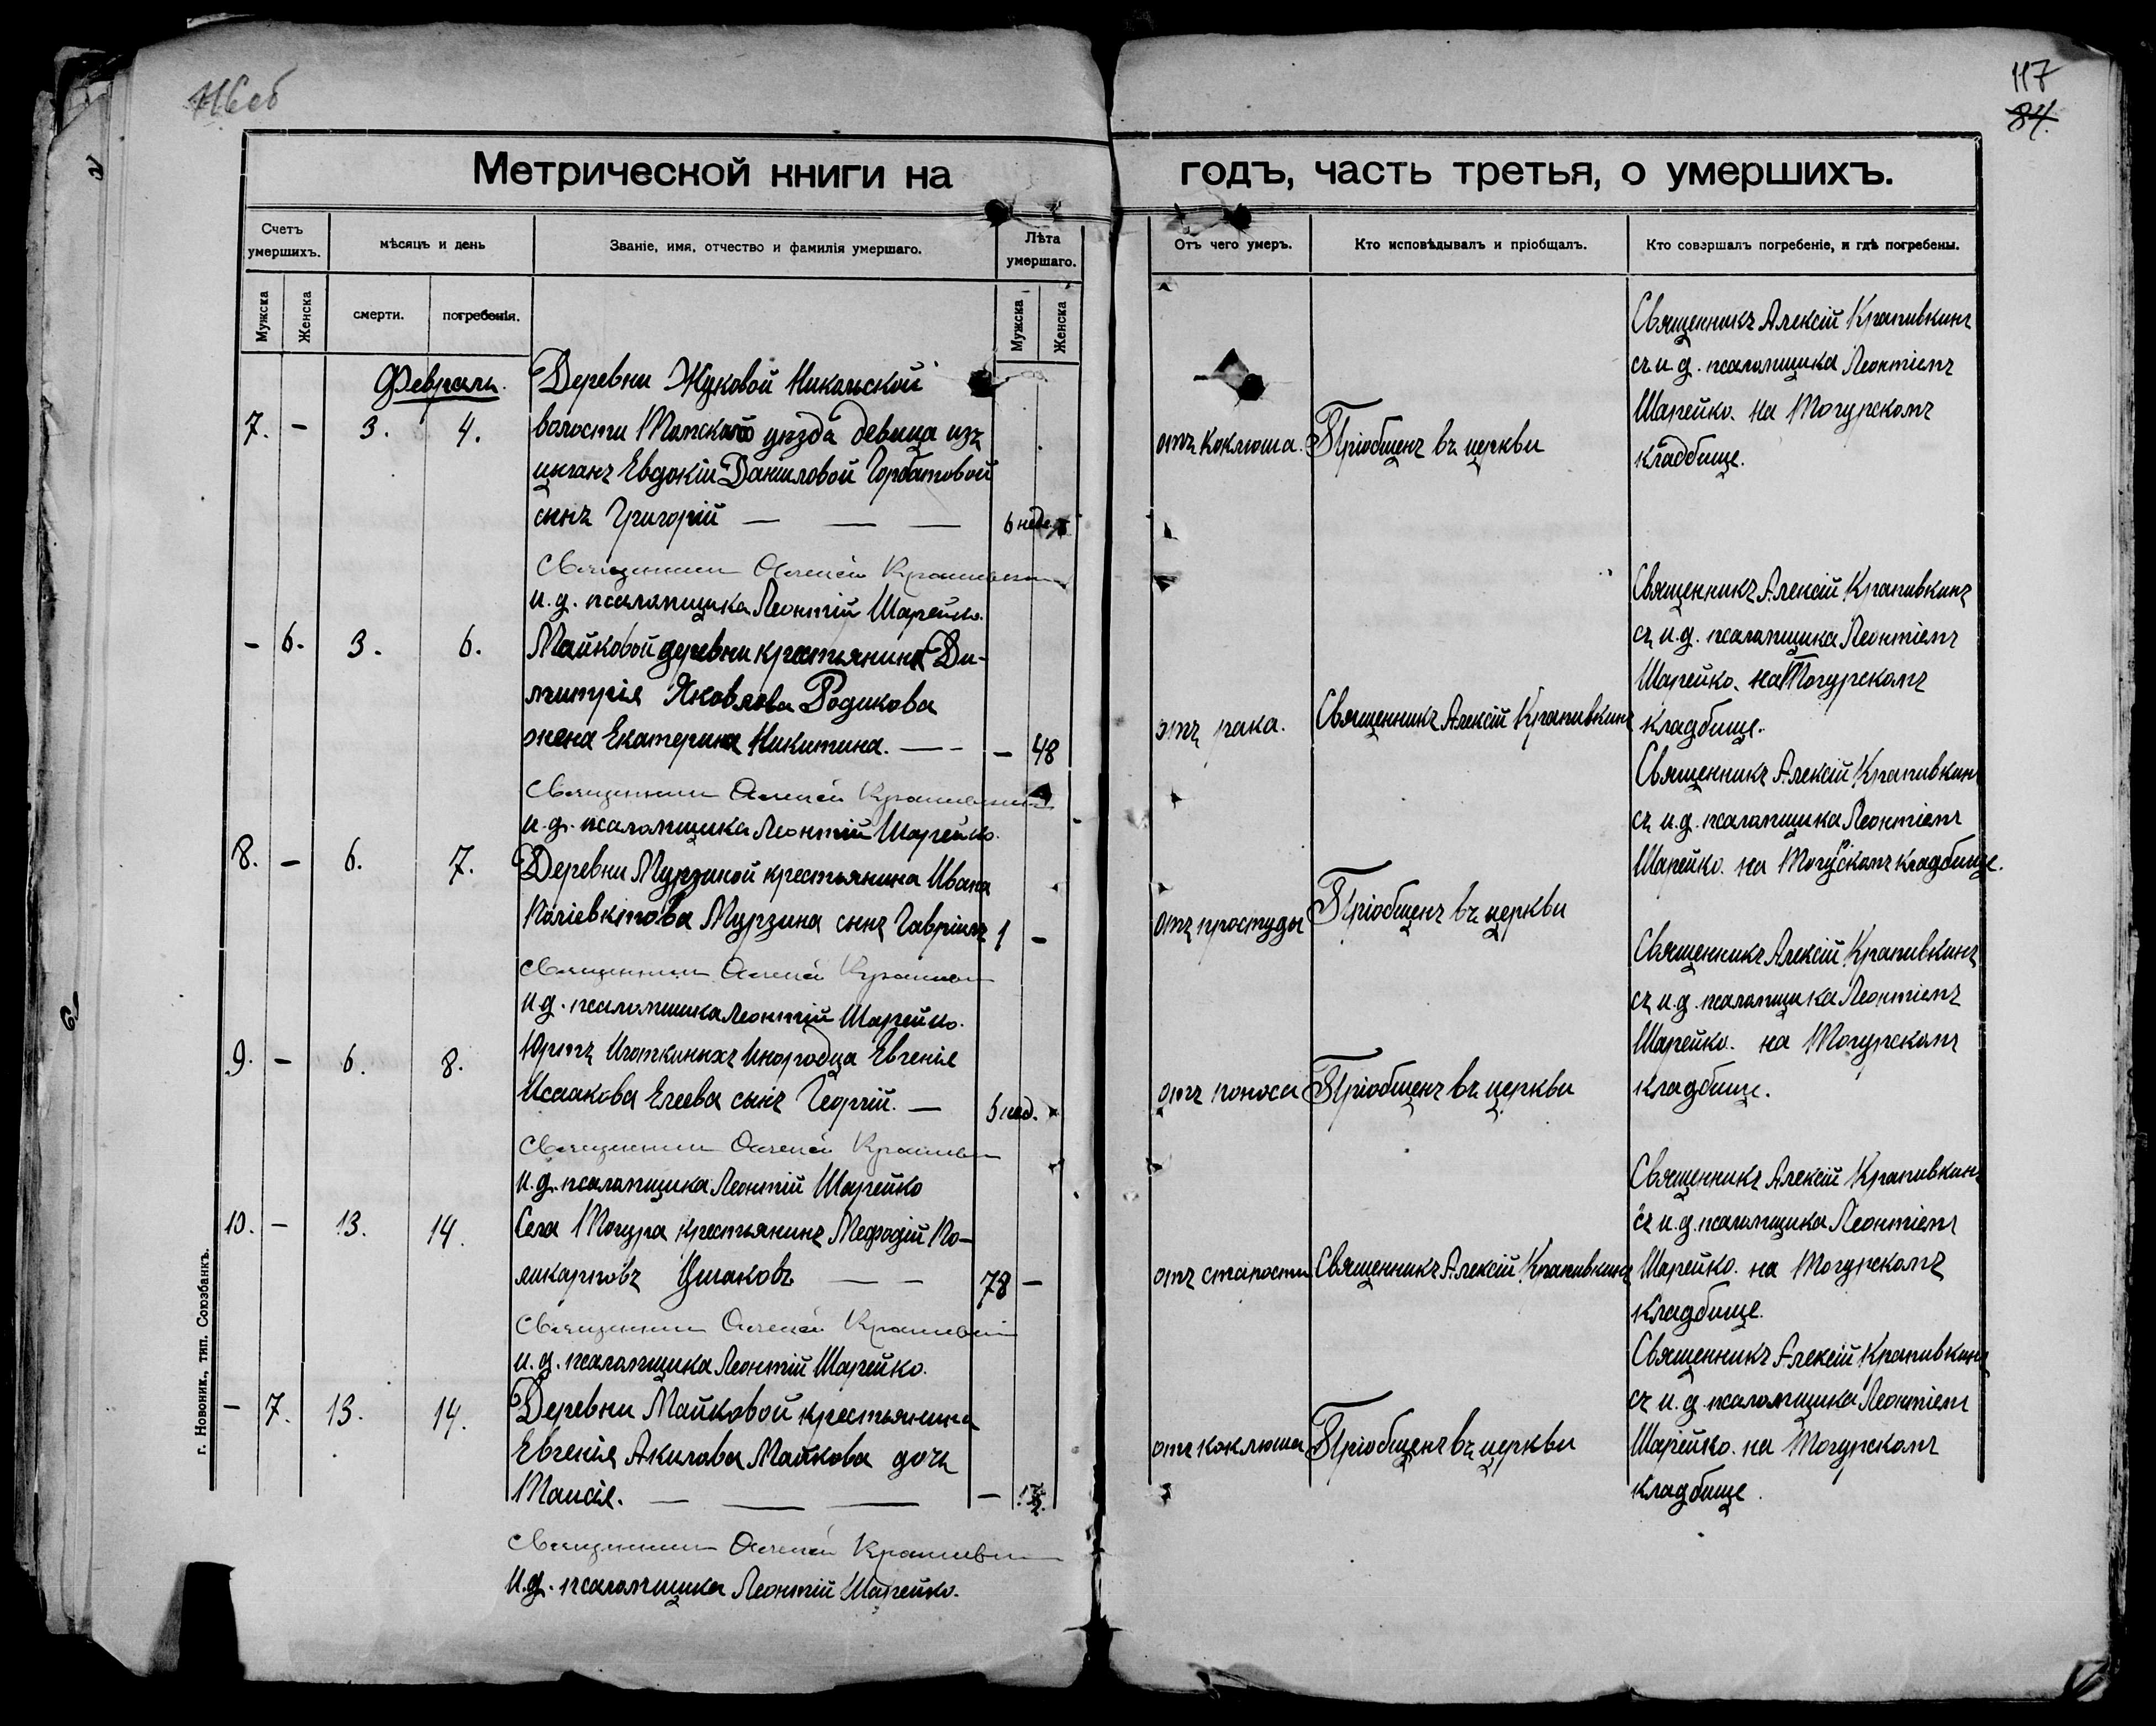 116об
117
84.
Метрической книги на годъ, часть третья, о умершихъ.
Счетъ умершихъ.
мѣсяцъ и день
Званіе, имя, отчество и фамилія умершаго.
Лѣта умершаго.
Отъ чего умеръ.
Кто исповѣдывалъ и пріобщалъ.
Кто совершалъ погребеніе, и гдѣ погребены.
Мужска
Женска
смерти.
погребенія.
Мужска
Женска
Февраль.
7. - 3. 4.
Деревни Жуковой Никольской
волости Томскаго уѣзда девица изъ
цыганъ Евдокіи Даниловой Горбатовой
сынъ Григорій — — —
6 недѣл
отъ коклюша.
Пріобщенъ въ церкви
Священникъ Алексій Крапивкинъ
съ и.д. псаломщика Леонтіемъ
Шарейко. на Тогурскомъ
кладбище.
Священникъ Алексій Крапивкинъ
и.д. псаломщика Леонтій Шарейко.
- 6. 3. 6.
Майковой деревни крестьянина Ди-
митрія Яковлева Родикова
жена Екатерина Никитина. — -
- 48
отъ рака.
Священникъ Алексій Крапивкинъ
Священникъ Алексій Крапивкинъ
съ и.д. псаломщика Леонтіемъ
Шарейко. на Тогурскомъ
кладбище.
Священникъ Алексій Крапивкинъ
и.д. псаломщика Леонтій Шарейко.
8. - 6. 7.
Деревни Мурзиной крестьянина Ивана
Мурзина сынъ Гавріилъ
1 -
отъ простуды
Пріобщенъ въ церкви
Священникъ Алексій Крапивкинъ
съ и.д. псаломщика Леонтіемъ
Шарейко. на Тогурскомъ кладбище.
Священникъ Алексій Крапивкинъ
и.д. псаломщика Леонтій Шарейко.
9. - 6. 8.
Юртъ Иготкиныхъ инородца Евгенія
Исаакова Елеева сынъ Георгій. —
6 нед.
отъ поноса
Пріобщенъ въ церкви
Священникъ Алексій Крапивкинъ
съ и.д. псаломщика Леонтіемъ
Шарейко. на Тогурскомъ
кладбище.
Священникъ Алексій Крапивкинъ
и.д. псаломщика Леонтій Шарейко
10. - 13. 14.
Села Тогура крестьянинъ Мефодій По-
ликарповъ Ушаковъ — —
78 -
отъ старости
Священникъ Алексій Крапивкинъ
Священникъ Алексій Крапивкинъ
съ и.д. псаломщика Леонтіемъ
Шарейко. на Тогурскомъ
кладбище.
Священникъ Алексій Крапивкинъ
и.д. псаломщика Леонтій Шарейко.
- 7. 13. 14.
Деревни Майковой крестьянина
Евгенія Акилова Майкова дочь
Таисія. — — —
-
отъ коклюша
Пріобщенъ въ церкви
Священникъ Алексій Крапивкинъ
съ и.д. псаломщика Леонтіемъ
Шарейко. на Тогурскомъ
кладбище.
Священникъ Алексій Крапивкинъ
и.д. псаломщика Леонтій Шарейко.
г. Новоник., тип. Союзбанкъ.